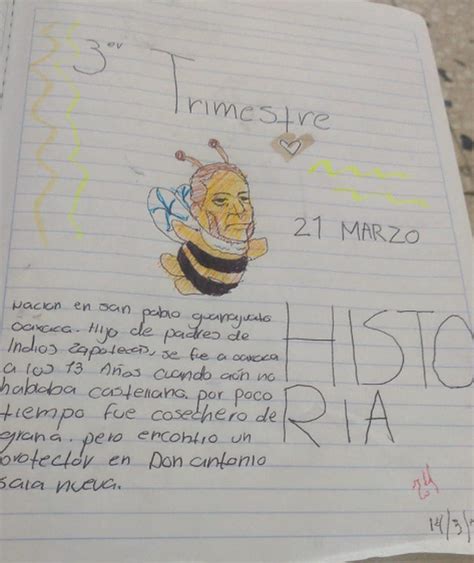 3er
Trimestre
21 MARZO
HISTO
RIA
Nacion en san pablo guanajuato
oaxaca. Hijo de padres de
Indios zapotecas, se fue a oaxaca
a los 13 Años cuando aún no
hababa castellana. por poco
tiempo fue cosechero de
grana. pero encontro un
protector en Don antonio
sala nueva.
14/3/